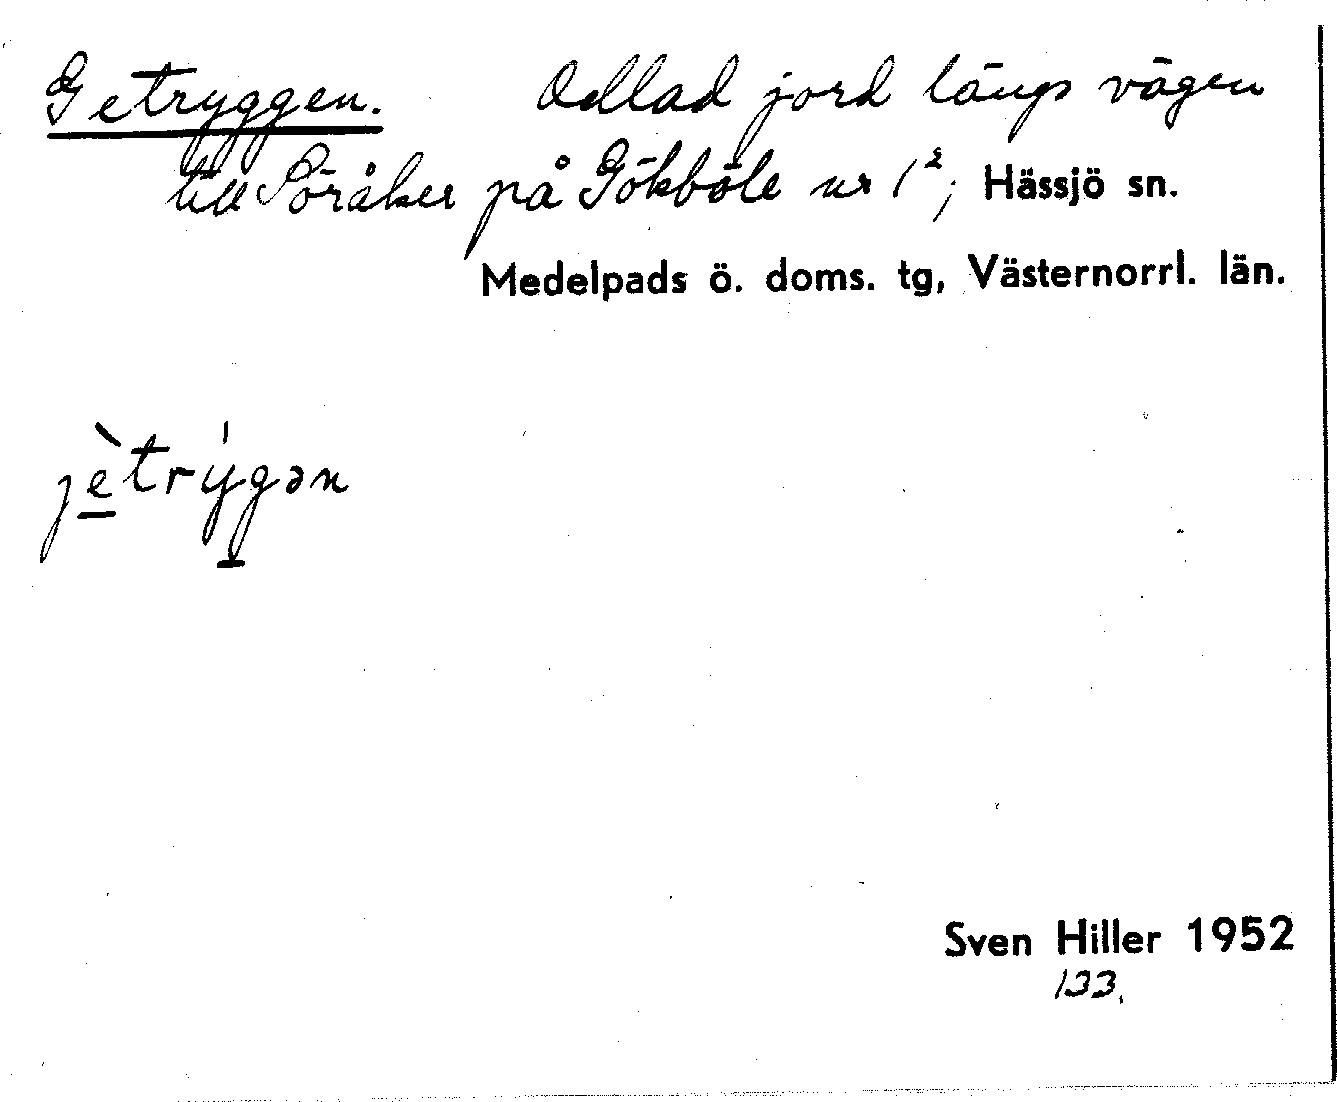 Getryggen. Odlad jord längs vägen
till Söråker på Gökböle nr 1², Hässjö sn.
Medelpads ö. doms. tg, Västernorrl. län.
jè̱trýgən
Sven Hiller 1952
133.